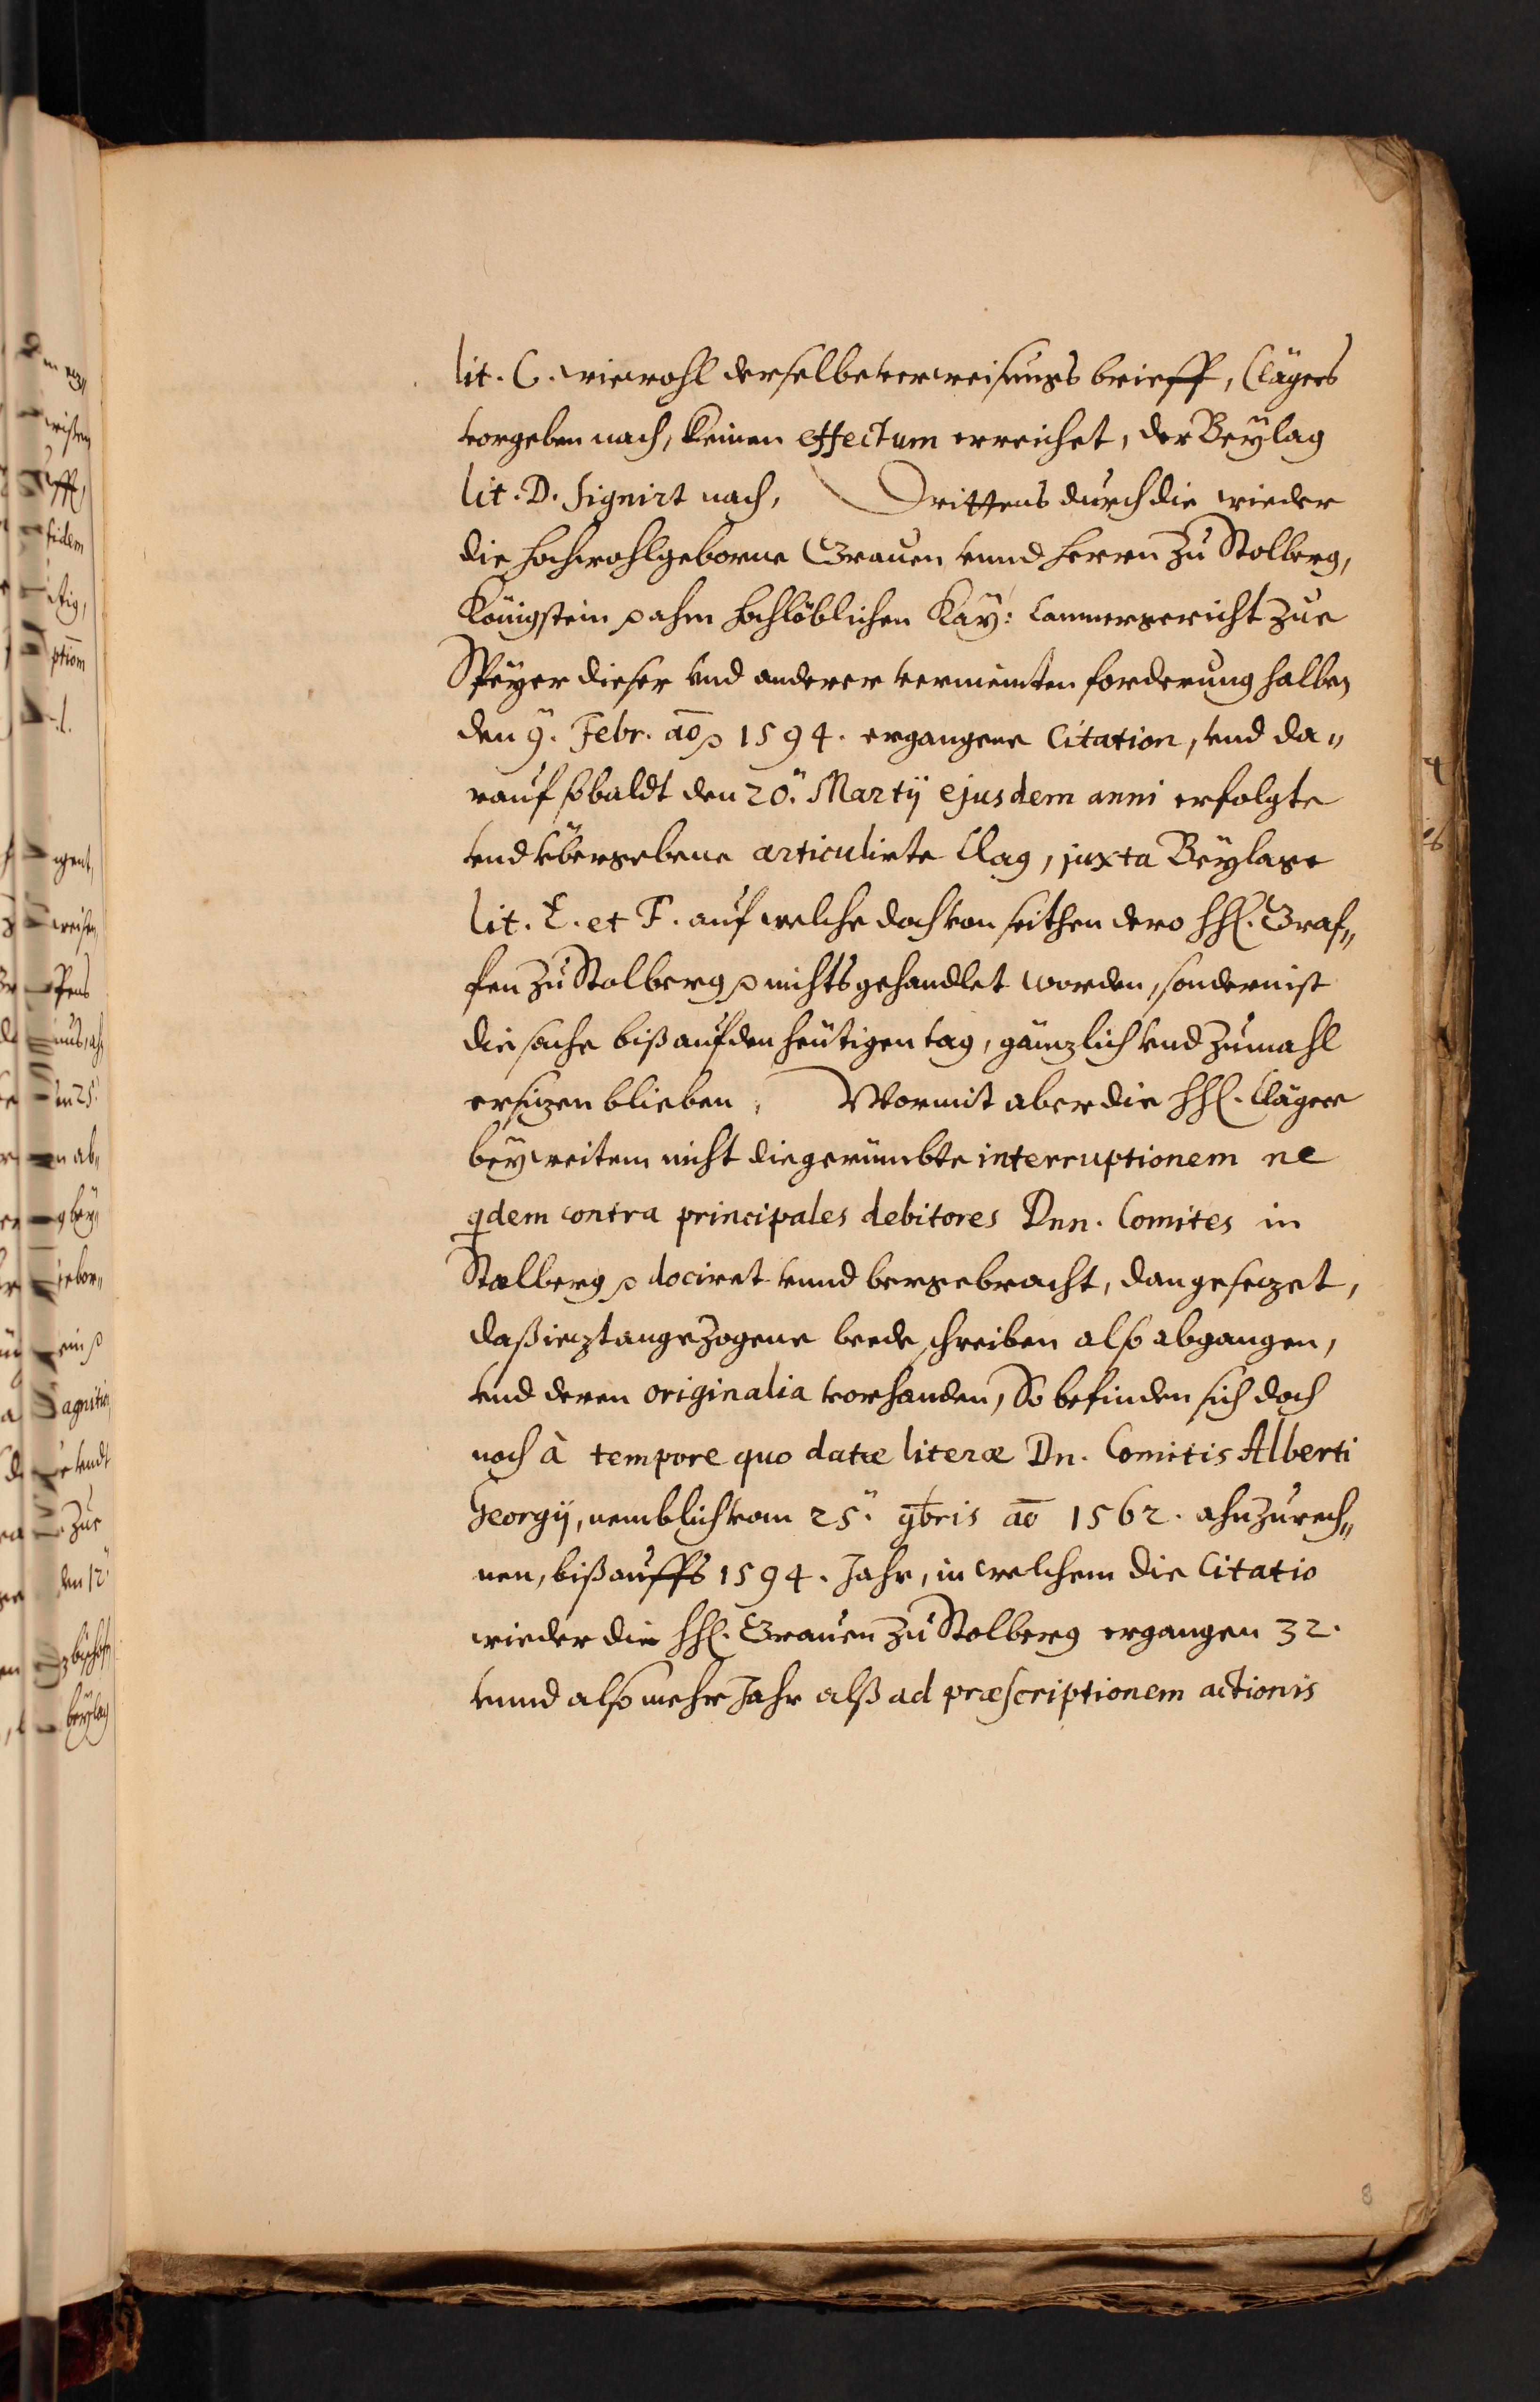 lit. C. wiewohl derselbe verweisungs brieff, Clägers
vorgeben nach, keinen effectum erreichet, der Beylag
lit. D. signirt nach, Drittens durch die wieder
die hochwohlgeborne Grauen vnnd herrn zu Stolberg,
Königstein p ahm hochlöblichen Kay: Cammergericht zue
Speyer dieser vnd anderer vermeinten forderung halben
den 9. Febr. ao p 1594. ergangene Citation, vnd da„
rauf sobaldt den 20. Martij ejusdem anni erfolgte
vnd vbergebene articulirte Clag, juxta Beylage
lit. E. et F. auf welche doch von seithen dero hhl. Graf„
fen zu Stolberg p nichts gehandlet worden, sondern ist
die sache biß auf den heutigen tag, gänzlich vnd zumahl
ersizen blieben, Wormit aber die hhl. Clägere
bey weitem nicht die gerümbte interruptionem ne
qdem contra principales debitores Dnn. Comites in
Stolberg p dociret vnnd beygebracht, dan gesezet,
daß iezt angezogene beede schreiben also abgangen,
vnd deren originalia vorhanden, So befinden sich doch
noch à tempore quo datæ literæ Dn. Comitis Alberti
Georgij, nemblich vom 25. 9bris ao 1562. ahnzurech„
nen, biß auffs 1594. Jahr, in welchem die Citatio
wieder die hhl. Grauen zu Stolberg ergangen 32.
vnnd also mehr Jahr alß ad præscriptionem actionis
8